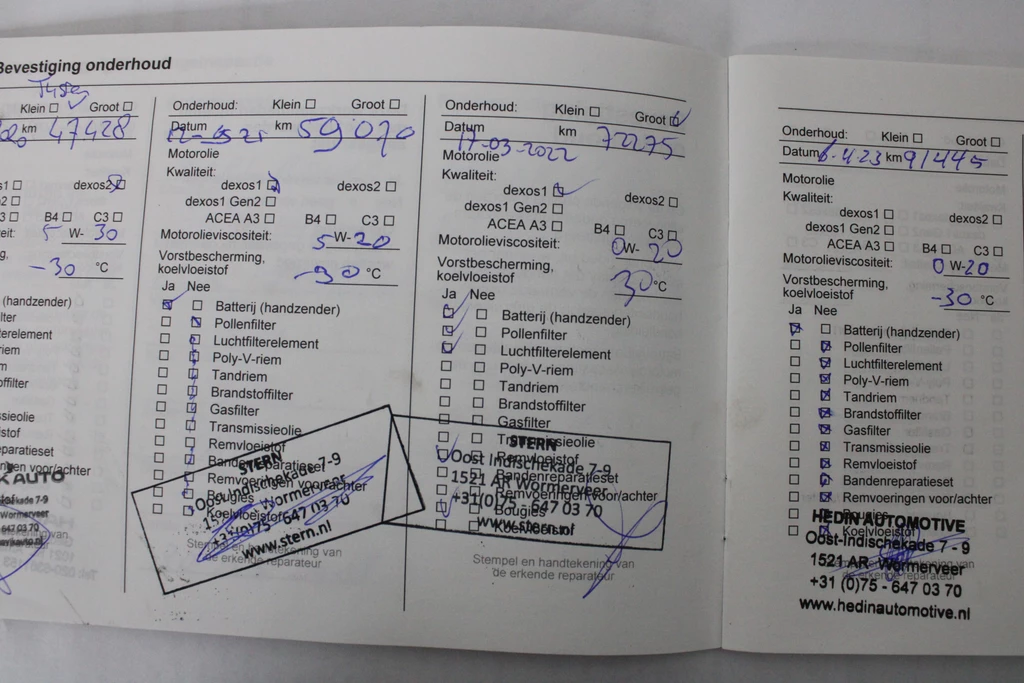 Bevestiging onderhoud
Klein Groot
km 47428
dexos2
B4 C3
5 W- 30
-30 °C
(handzender)
missieolie
reparatieset
voor/achter
AUTO
647 03 70
Onderhoud: Klein Groot
Datum km 59070
Motorolie
Kwaliteit:
dexos1 dexos2
dexos1 Gen2
ACEA A3 B4 C3
Motorolieviscositeit: 5 W-20
Vorstbescherming,
koelvloeistof -30 °C
Ja Nee
Batterij (handzender)
Pollenfilter
Luchtfilterelement
Poly-V-riem
Tandriem
Brandstoffilter
Gasfilter
Transmissieolie
Remvloeistof
Bandenreparatieset
Remvoeringen voor/achter
Bougies
Koelvloeistof
STERN
Oost Indischekade 7-9
1521 AR Wormerveer
+31(0)75 - 647 03 70
www.stern.nl
Stempel en handtekening van
de erkende reparateur
Onderhoud: Klein Groot
Datum 17-03-2022 km 72275
Motorolie
Kwaliteit:
dexos1 dexos2
dexos1 Gen2
ACEA A3 B4 C3
Motorolieviscositeit: 0W-20
Vorstbescherming,
koelvloeistof 30 °C
Ja Nee
Batterij (handzender)
Pollenfilter
Luchtfilterelement
Poly-V-riem
Tandriem
Brandstoffilter
Gasfilter
Transmissieolie
Remvloeistof
Bandenreparatieset
Remvoeringen voor/achter
Bougies
Koelvloeistof
STERN
Oost Indischekade 7-9
1521 AR Wormerveer
+31(0)75 - 647 03 70
www.stern.nl
Stempel en handtekening van
de erkende reparateur
Onderhoud: Klein Groot
Datum 6-4-23 km 91445
Motorolie
Kwaliteit:
dexos1 dexos2
dexos1 Gen2
ACEA A3 B4 C3
Motorolieviscositeit: 0 W-20
Vorstbescherming,
koelvloeistof -30 °C
Ja Nee
Batterij (handzender)
Pollenfilter
Luchtfilterelement
Poly-V-riem
Tandriem
Brandstoffilter
Gasfilter
Transmissieolie
Remvloeistof
Bandenreparatieset
Remvoeringen voor/achter
Bougies
Koelvloeistof
HEDIN AUTOMOTIVE
Oost-Indischekade 7 - 9
1521 AR Wormerveer
+31 (0)75 - 647 03 70
www.hedinautomotive.nl
de erkende reparateur